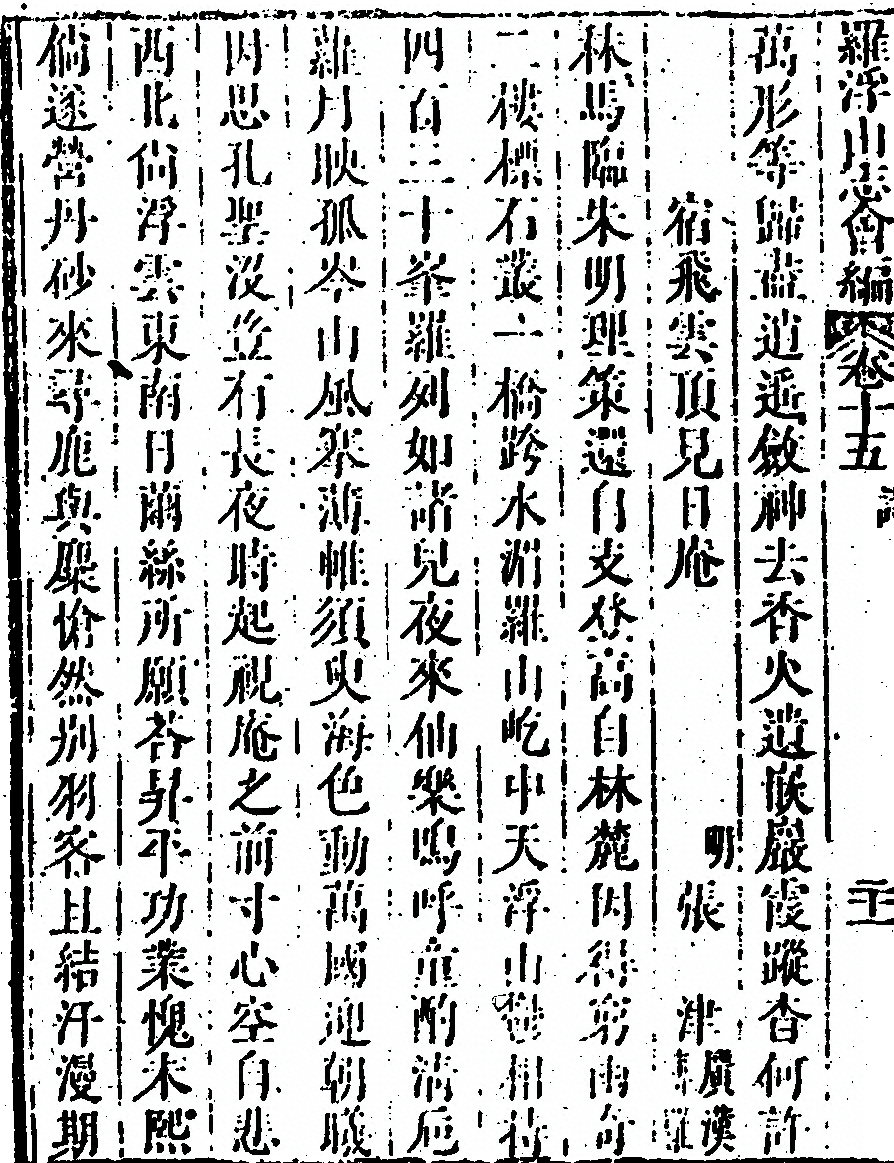 羅浮山志會編 卷十五 詩 二十一
萬形等歸盡逍遥斂神去香火遺嵌巖霞蹤杳何許
宿飛雲頂見日庵 明 張津
秣馬臨朱明理策還自支登高自林麓因得窮幽奇
二樓標石叢一橋跨水湄羅山屹中天浮山鬱相待
四百三十峯羅列如諸兒夜來仙樂鳴呼童酌清巵
蘿月映孤岑山風寒薄帷須臾海色動萬國迎朝曦
因思孔聖沒豈有長夜時起視庵之前寸心空自悲
西北尚浮雲東南日繭絲所願答昇平功業愧未熙
倘遂營丹砂來尋鹿與麋愴然別羽客且結汗漫期